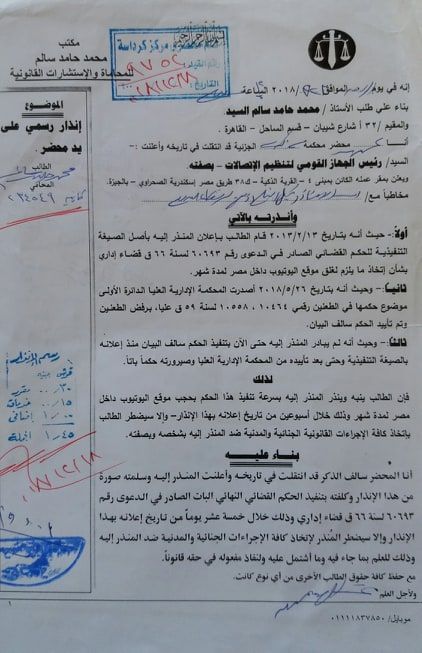 مكتب
محمد حامد سالم
للمحاماة والإستشارات القانونية
مركز كرداسة
رقم القيد
التاريخ
إنه في يوم الموافق / /٢٠١٨ الساعة
بناء على طلب الأستاذ / محمد حامد سالم السيد
والمقيم / ٣٢ أ شارع شيبان – قسم الساحل – القاهرة .
أنا محضر محكمة الجزئية قد انتقلت في تاريخه وأعلنت :
السيد/ رئيس الجهاز القومي لتنظيم الإتصالات – بصفته.
ويعلن بمقر عمله الكائن بمبنى ٤ – القرية الذكية – ك٢٨ طريق مصر إسكندرية الصحراوي – بالجيزة.
مخاطباً مع/
الموضوع
إنذار رسمي على
يد محضر.
الطالب
المحامي
٢٣٤٥٤٩
وأنذرته بالآتي
أولاً:- حيث أنه بتاريخ ٢٠١٣/٢/١٣ قام الطالب بإعلان المنذر إليه بأصل الصيغة
التنفيذية للحكم القضائي الصادر في الدعوى رقم ٦٠٦٩٣ لسنة ٦٦ ق قضاء إداري
بشأن إتخاذ ما يلزم لغلق موقع اليوتيوب داخل مصر لمدة شهر.
ثانياً:- وحيث أنه بتاريخ ٢٠١٨/٥/٢٦ أصدرت المحكمة الإدارية العليا الدائرة الأولى
موضوع حكمها في الطعنين رقمي ١٠٤٦٤ ، ١٠٥٥٨ لسنة ٥٩ ق عليا، برفض الطعنين
وتم تأييد الحكم سالف البيان.
ثالثاً:- وحيث أنه لم يبادر المنذر إليه حتى الآن بتنفيذ الحكم سالف البيان منذ إعلانه
بالصيغة التنفيذية وحتى بعد تأييده من المحكمة الإدارية العليا وصيرورته حكماً باتاً.
لذلك
فإن الطالب ينبه وينذر المنذر إليه بسرعة تنفيذ هذا الحكم بحجب موقع اليوتيوب داخل
مصر لمدة شهر وذلك خلال أسبوعين من تاريخ إعلانه بهذا الإنذار- وإلا سيضطر الطالب
بإتخاذ كافة الإجراءات القانونية الجنائية والمدنية ضد المنذر إليه بشخصه وبصفته.
رسم الإنذار
قرش جنيه
٣٠/٠٠ مقرر
١٥/٠٠
٠٠/١ إضافي
٤٥/١ الجملة
بناء عليه
أنا المحضر سالف الذكر قد انتقلت في تاريخه وأعلنت المنذر إليه وسلمته صورة
من هذا الإنذار وكلفته بتنفيذ الحكم القضائي النهائي البات الصادر في الدعوى رقم
٦٠٦٩٣ لسنة ٦٦ ق قضاء إداري وذلك خلال خمسة عشر يوماً من تاريخ إعلانه بهذا
الإنذار وإلا سيضطر المُنذر لإتخاذ كافة الإجراءات الجنائية والمدنية ضد المنذر إليه
وذلك للعلم بما جاء فيه وما أشتمل عليه ولنفاذ مفعوله في حقه قانوناً.
مع حفظ كافة حقوق الطالب الأخرى من أي نوع كانت.
ولأجل العلم
١
موبايل/ ٠١١١١٨٣٧٨٥٠